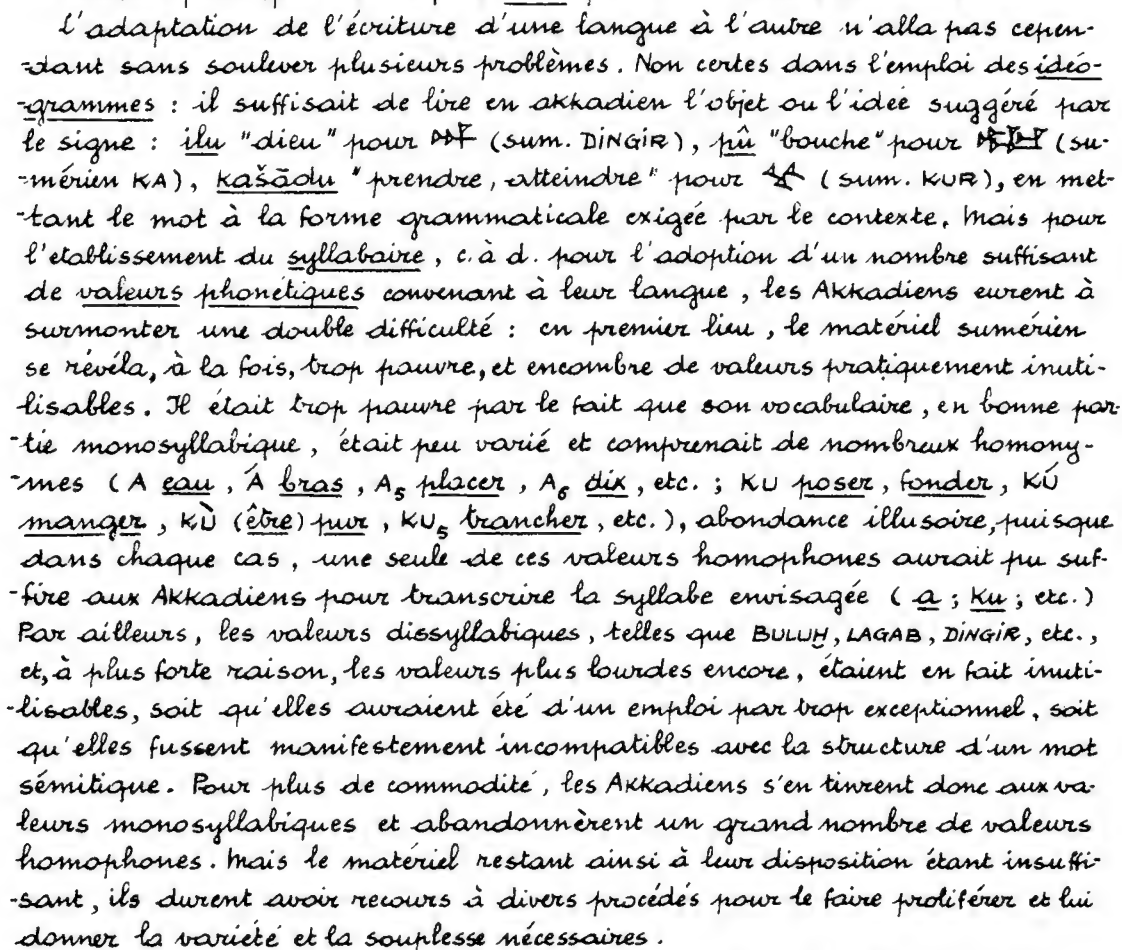 L'adaptation de l'écriture d'une langue à l'autre n'alla pas cepen-
-dant sans soulever plusieurs problèmes. Non certes dans l'emploi des idéo-
-grammes : il suffisait de lire en akkadien l'objet ou l'idée suggéré par
le signe : ilu "dieu" pour 𒀭 (sum. DINGIR), pû "bouche" pour 𒅗 (su-
-mérien KA), kašādu "prendre, atteindre" pour 𒆳 (sum. KUR), en met-
-tant le mot à la forme grammaticale exigée par le contexte. Mais pour
l'etablissement du syllabaire, c. à d. pour l'adoption d'un nombre suffisant
de valeurs phonétiques convenant à leur langue, les Akkadiens eurent à
surmonter une double difficulté : en premier lieu, le matériel sumérien
se révéla, à la fois, trop pauvre, et encombre de valeurs pratiquement inuti-
-lisables. Il était trop pauvre par le fait que son vocabulaire, en bonne par-
-tie monosyllabique, était peu varié et comprenait de nombreux homony-
-mes (A eau, Á bras, A₅ placer, A₆ dix, etc. ; KU poser, fonder, KÚ
manger, KÙ (être) pur, KU₅ trancher, etc.), abondance illusoire, puisque
dans chaque cas, une seule de ces valeurs homophones aurait pu suf-
-fire aux Akkadiens pour transcrire la syllabe envisagée (a ; ku ; etc.)
Par ailleurs, les valeurs dissyllabiques, telles que BULUḪ, LAGAB, DINGIR, etc.,
et, à plus forte raison, les valeurs plus lourdes encore, étaient en fait inuti-
-lisables, soit qu'elles auraient été d'un emploi par trop exceptionnel, soit
qu'elles fussent manifestement incompatibles avec la structure d'un mot
sémitique. Pour plus de commodité, les Akkadiens s'en tinrent donc aux va-
leurs monosyllabiques et abandonnèrent un grand nombre de valeurs
homophones. Mais le matériel restant ainsi à leur disposition étant insuffi-
-sant, ils durent avoir recours à divers procédés pour le faire proliférer et lui
donner la variété et la souplesse nécessaires.